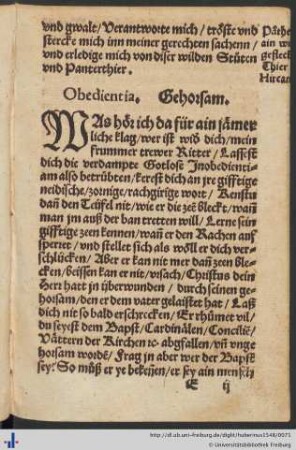 vnd gwalt/ Verantworte mich/ tröste vnd
stercke mich inn meiner gerechten sachenn/
vnd erledige mich von diser wilden Stüten
vnd Panterthier.
Pārhe
ain w
gefleck
Thier
Hircan
Obedientia. Gehorsam.
WAs hör ich da für ain jämer
liche klag/ wer ist wid dich/ mein
frummer trewer Ritter/ Lassest
dich die verdampte Gotloß Inobedienti-
am also betrübten/ kerest dich an jre gifftige
neidische/ zornige/ rachgirige wort/ Kenstu
dañ den Teüfel nit/ wie er die zeē bleckt/ wañ
man jm auß der ban tretten will/ Lerne sein
gifftige zeen kennen/ wañ er den Rachen auff
sperret/ vnd stellet sich als wöll er dich ver-
schlücken/ Aber er kan nit mer dañ zeen ble-
cken/ beissen kan er nit/ vrsach/ Christus dein
Herr hatt jn überwunden/ durch seinen ge-
horsam/ den er dem vater gelaistet hat/ Laß
dich nit so bald erschrecken/ Er rhümet wil/
du seyest dem Bapst/ Cardinälen/ Concilië/
Vättern der Kirchen ꝛc. abgfallen/ vñ vnge
horsam wordē/ Frag jn aber wer der Bapst
sey? So müß er ye bekeñen/ er sey ain mensch
E ij
http://dl.ub.uni-freiburg.de/diglit/habermus1546/0071
© Universitätsbibliothek Freiburg